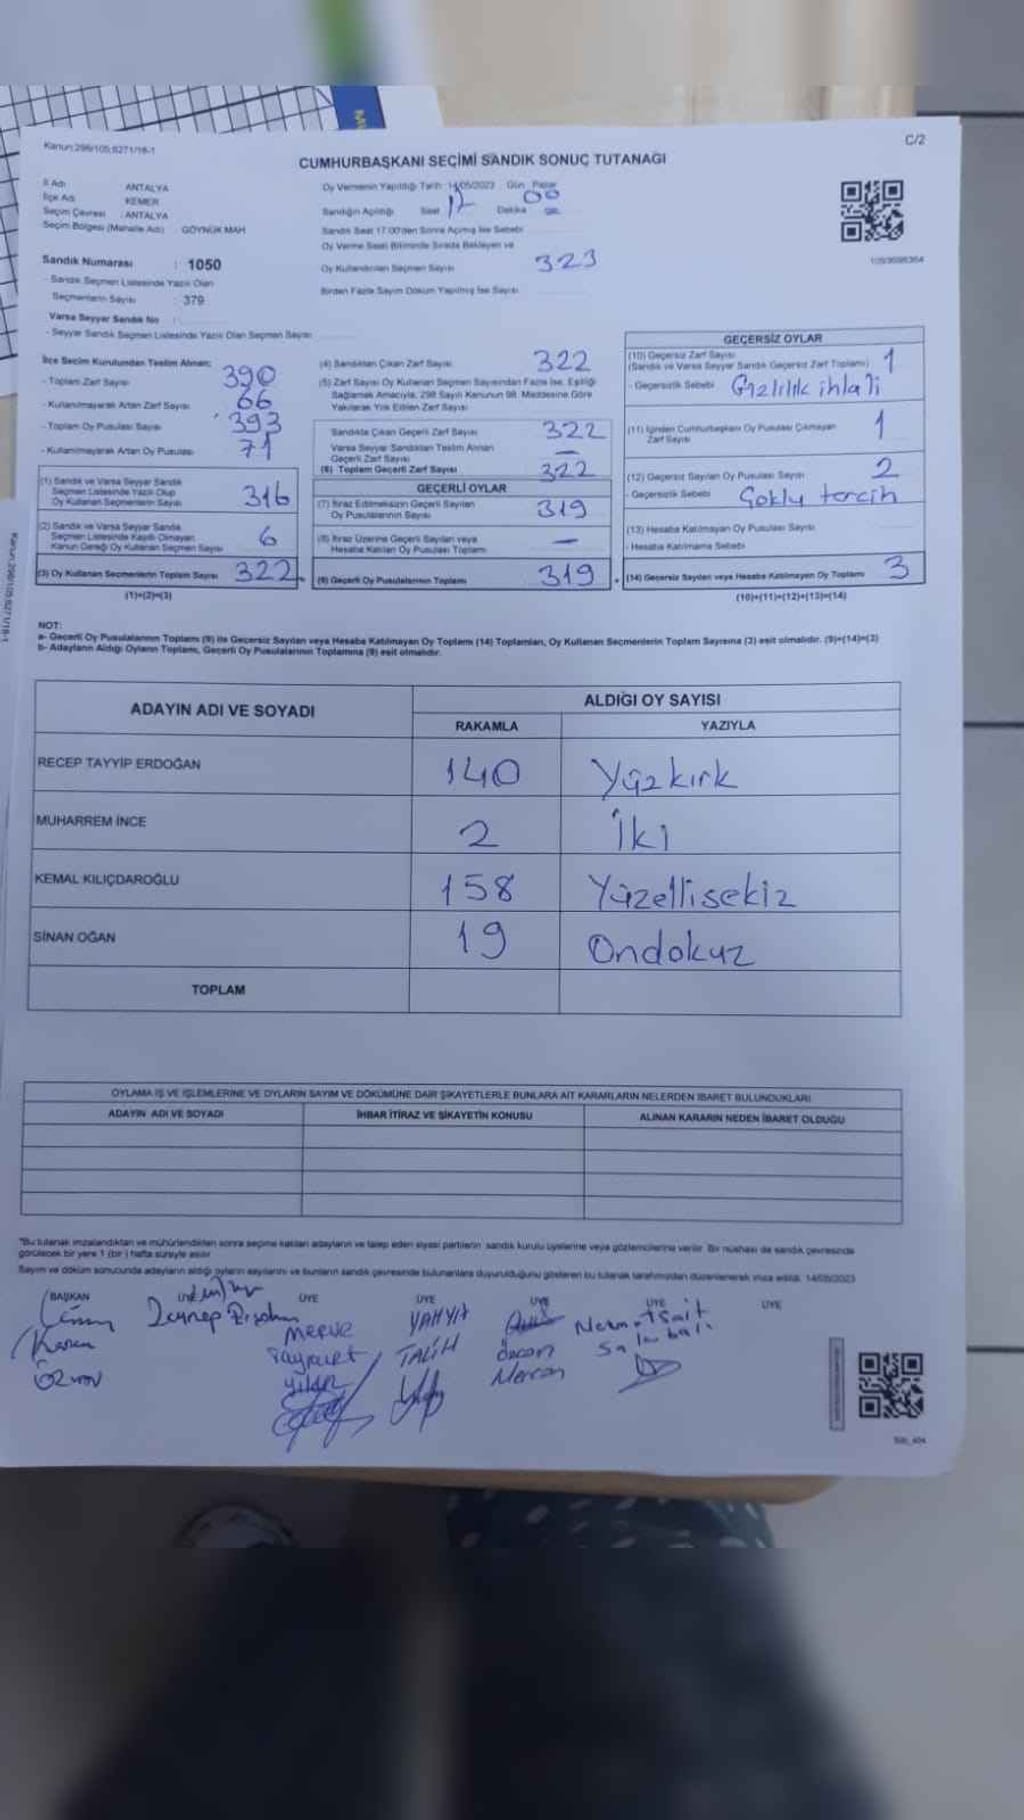 Kanun:298/105;6271/18-1
C/2
CUMHURBAŞKANI SEÇİMİ SANDIK SONUÇ TUTANAĞI
İl Adı ANTALYA
İlçe Adı KEMER
Seçim Çevresi : ANTALYA
Seçim Bölgesi (Mahalle Adı) GÖYNÜK MAH
Sandık Numarası : 1050
- Sandık Seçmen Listesinde Yazılı Olan
Seçmenlerin Sayısı : 379
Varsa Seyyar Sandık No :
- Seyyar Sandık Seçmen Listesinde Yazılı Olan Seçmen Sayısı
Oy Vermenin Yapıldığı Tarih : 14/05/2023 Gün : Pazar
Sandığın Açıldığı Saat 17 Dakika 00
Sandık Saat 17:00'den Sonra Açılmış İse Sebebi
Oy Verme Saati Bitiminde Sırada Bekleyen ve
Oy Kullandırılan Seçmen Sayısı 323
Birden Fazla Sayım Döküm Yapılmış İse Sayısı
İlçe Seçim Kurulundan Teslim Alınan:
- Toplam Zarf Sayısı 390
- Kullanılmayarak Artan Zarf Sayısı 66
- Toplam Oy Pusulası Sayısı 393
- Kullanılmayarak Artan Oy Pusulası 71
(1) Sandık ve Varsa Seyyar Sandık
Seçmen Listesinde Yazılı Olup
Oy Kullanan Seçmenlerin Sayısı 316
(2) Sandık ve Varsa Seyyar Sandık
Seçmen Listesinde Kayıtlı Olmayan
Kanun Gereği Oy Kullanan Seçmen Sayısı 6
(3) Oy Kullanan Seçmenlerin Toplam Sayısı 322
(1)+(2)=(3)
(4) Sandıktan Çıkan Zarf Sayısı 322
(5) Zarf Sayısı Oy Kullanan Seçmen Sayısından Fazla İse, Eşitliği
Sağlamak Amacıyla, 298 Sayılı Kanunun 98. Maddesine Göre
Yakılarak Yok Edilen Zarf Sayısı
Sandıkta Çıkan Geçerli Zarf Sayısı 322
Varsa Seyyar Sandıktan Teslim Alınan
Geçerli Zarf Sayısı —
(6) Toplam Geçerli Zarf Sayısı 322
GEÇERLİ OYLAR
(7) İtiraz Edilmeksizin Geçerli Sayılan
Oy Pusulalarının Sayısı 319
(8) İtiraz Üzerine Geçerli Sayılan veya
Hesaba Katılan Oy Pusulası Toplamı —
(9) Geçerli Oy Pusulalarının Toplamı 319
GEÇERSİZ OYLAR
(10) Geçersiz Zarf Sayısı
(Sandık ve Varsa Seyyar Sandık Geçersiz Zarf Toplamı) 1
- Geçersizlik Sebebi Gizlilik ihlali
(11) İçinden Cumhurbaşkanı Oy Pusulası Çıkmayan
Zarf Sayısı 1
(12) Geçersiz Sayılan Oy Pusulası Sayısı 2
- Geçersizlik Sebebi Çoklu tercih
(13) Hesaba Katılmayan Oy Pusulası Sayısı
- Hesaba Katılmama Sebebi
(14) Geçersiz Sayılan veya Hesaba Katılmayan Oy Toplamı 3
(10)+(11)+(12)+(13)=(14)
NOT:
a- Geçerli Oy Pusulalarının Toplamı (9) ile Geçersiz Sayılan veya Hesaba Katılmayan Oy Toplamı (14) Toplamları, Oy Kullanan Seçmenlerin Toplam Sayısına (3) eşit olmalıdır. (9)+(14)=(3)
b- Adayların Aldığı Oyların Toplamı, Geçerli Oy Pusulalarının Toplamına (9) eşit olmalıdır.
ADAYIN ADI VE SOYADI
ALDIĞI OY SAYISI
RAKAMLA YAZIYLA
RECEP TAYYİP ERDOĞAN 140 Yüzkırk
MUHARREM İNCE 2 İki
KEMAL KILIÇDAROĞLU 158 Yüzellisekiz
SİNAN OĞAN 19 Ondokuz
TOPLAM
OYLAMA İŞ VE İŞLEMLERİNE VE OYLARIN SAYIM VE DÖKÜMÜNE DAİR ŞİKAYETLERLE BUNLARA AİT KARARLARIN NELERDEN İBARET BULUNDUKLARI
ADAYIN ADI VE SOYADI İHBAR İTİRAZ VE ŞİKAYETİN KONUSU ALINAN KARARIN NEDEN İBARET OLDUĞU
*Bu tutanak imzalandıktan ve mühürlendikten sonra seçime katılan adayların ve talep eden siyasi partilerin sandık kurulu üyelerine veya gözlemcilerine verilir. Bir nüshası da sandık çevresinde
görülecek bir yere 1 (bir) hafta süreyle asılır.
Sayım ve döküm sonucunda adayların aldığı oyların sayılarını ve bunların sandık çevresinde bulunanlara duyurulduğunu gösteren bu tutanak tarafımızdan düzenlenerek imza edildi. 14/05/2023
BAŞKAN ÜYE ÜYE ÜYE ÜYE ÜYE
Zeynep
Merve
YAHYA
TALİH